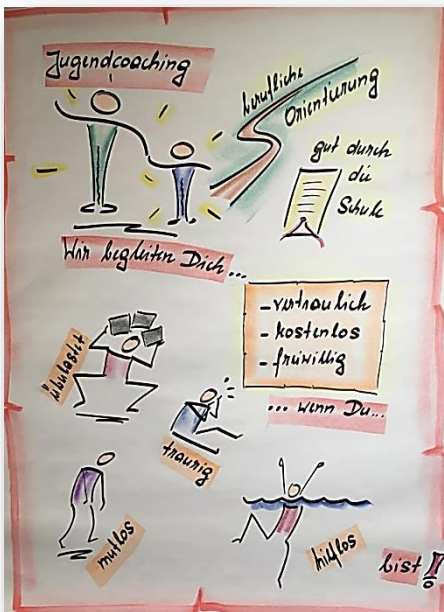 Jugendcoaching
berufliche
Orientierung
gut durch
die
Schule
Wir begleiten Dich...
- vertraulich
- kostenlos
- freiwillig
... wenn Du...
überlastet
traurig
mutlos
hilflos
bist!